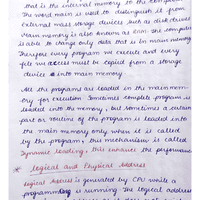 that is the internal memory to the computer
The word main is used to distinguish it from
External mass storage devices such as disk drives
Main memory is also known as RAM. the computer
is able to change only data that is in main memory
Therefore every program we execute and every
file we access must be copied from a storage
device into main memory.
All the programs are loaded in the main mem
ory for execution Sometimes complete program is
loaded into the memory, but sometimes a certain
part or routine of the program is loaded into
the main memory only when it is called
by the program, this mechanism is called
Dynamic loading, this enhance the performance
* logical and Physical Address
logical Address is generated by CPU while a
program is running. The logical address